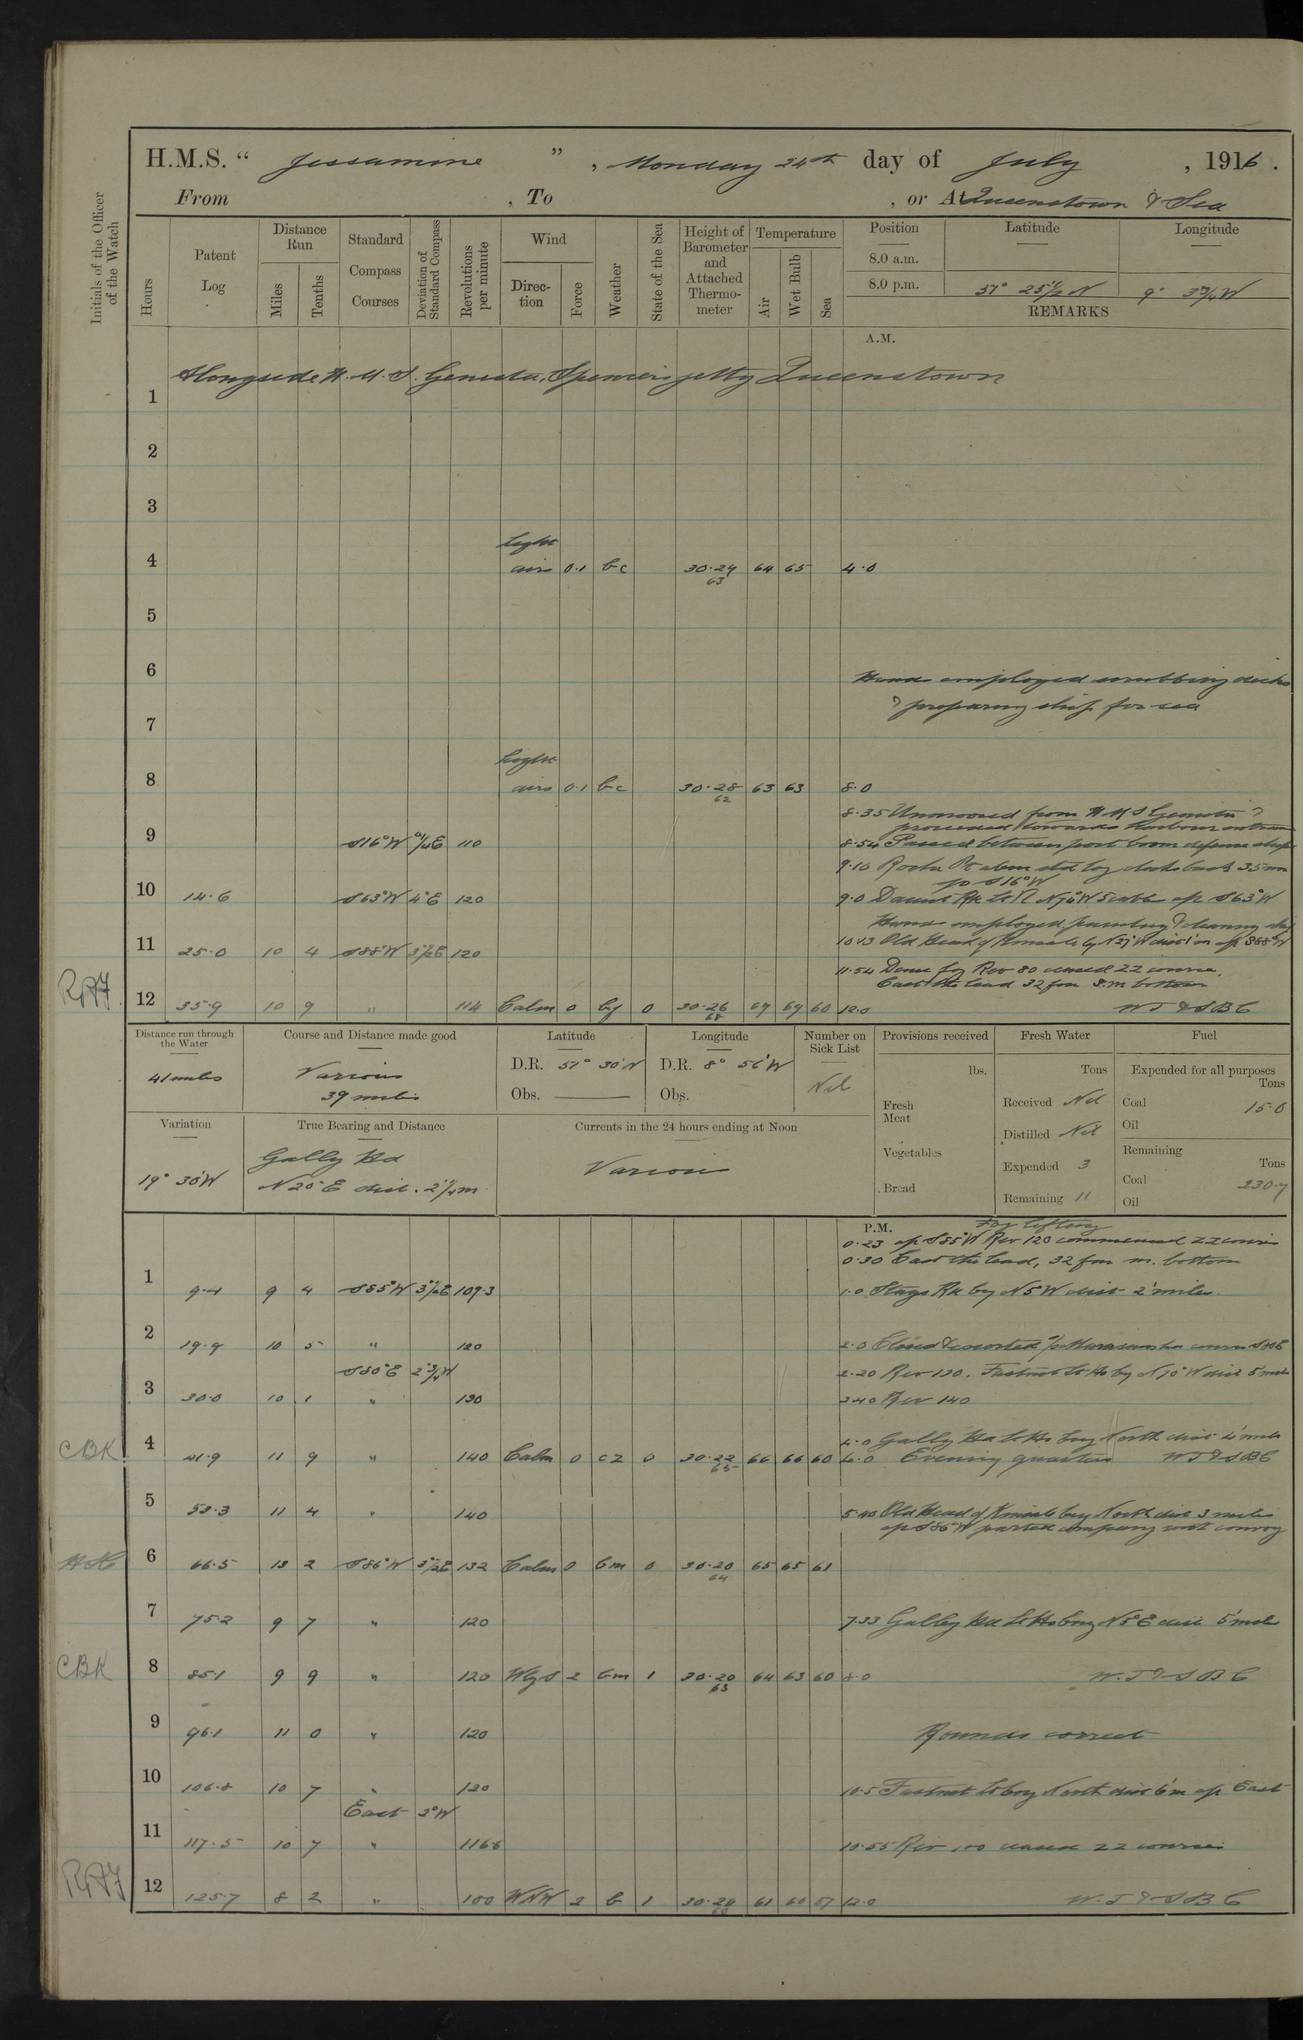 H.M.S. " Jessamine " , Monday 24th day of July , 1916 .
From , To , or At Queenstown & Sea
Initials of the Officer of the Watch
Hours
Patent Log
Distance Run
Miles
Tenths
Standard Compass Courses
Deviation of Standard Compass
Revolutions per minute
Wind
Direction
Force
Weather
State of the Sea
Height of Barometer and Attached Thermometer
Temperature
Air
Wet Bulb
Sea
Position Latitude Longitude
8.0 a.m.
8.0 p.m. 51° 25½ N 9° W
REMARKS
A.M.
Alongside H.M.S. Genista, Spencers jetty Queenstown
1
2
3
4 Light airs 0.1 bc 30.24 63 64 65 4.0
5
6
Hands employed scrubbing decks
& preparing ship for sea
7
8 Light airs 0.1 bc 30.28 62 63 63 8.0
8.35 Unmoored from H M S Genista &
proceeded towards Harbour entrance
9 S16°W 110
8.54 Passed between port boom defence ships
9.10
S16°W
10 14.6 S63°W 4°E 120
9.0 Daunt Rk Lt V N74°W 5 cables a/c S63°W
Hands employed painting & cleaning ship
11 25.0 10 4 S88°W 3½E 120
10.43 Old Head of Kinsale a/c S88°W
11.54 Dense fog Rev 80 ceased ZZ course.
Cast the lead 32 fm S.m bottom
RAJ 12 35.9 10 9 " 114 Calm 0 bf 0 30.26 68 69 69 60 12.0 W T & S B C
Distance run through the Water
41 miles
Course and Distance made good
Various
39 miles
Latitude
D.R. 51° 30' N
Obs.
Longitude
D.R. 8° 56' W
Obs.
Number on Sick List
Nil
Provisions received
lbs.
Fresh Meat
Vegetables
Bread
Fresh Water
Tons
Received Nil
Distilled Nil
Expended 3
Remaining 11
Fuel
Expended for all purposes
Tons
Coal 15.0
Oil
Remaining
Tons
Coal 230.7
Oil
Variation
19° 30' W
True Bearing and Distance
Gally Hd
N 20° E dist. 2¼ m
Currents in the 24 hours ending at Noon
Various
P.M. Fog lifting
0.23 a/c S85°W Rev 120 commenced ZZ courses
0.30 Cast the lead, 32 fm m. bottom
1 9.4 9 4 S85°W 3½E 109.3 1.0 Stags Rk by N5°W dist 2 miles
2 19.9 10 5 " 120 2.0 Closed & escorted
S80°E 2¾W
2.20 Rev 130. Fastnet Lt Ho by N70°W dist 5 miles
3 30.0 10 1 " 130 2.40 Rev 140
4.0 Gally Hd Lt Ho brg North dist 4 miles
CBK 4 41.9 11 9 " 140 Calm 0 cz 0 30.22 65 66 66 60 4.0 Evening quarters W T & S B C
5 53.3 11 4 " 140 5.40 Old Head of Kinsale brg North dist 3 miles
a/c S86°W parted company with convoy
6 66.5 13 2 S86°W 3½E 132 Calm 0 bm 0 30.20 64 65 65 61
7 75.2 9 7 " 120 7.33 Galley Hd Lt Ho brg N5°E dist 5 miles
CBK 8 85.1 9 9 " 120 WbyS 2 bm 1 30.20 63 64 63 60 8.0 W. T & S B C
9 96.1 11 0 " 120 Rounds correct
10 106.8 10 7 " 120 10.5 Fastnet Lt brg North dist 6'm a/c East
East 3°W
11 117.5 10 7 " 116.6 10.55 Rev 100 ceased ZZ courses
RAJ 12 125.7 8 2 " 100 WNW 2 b 1 30.24 61 60 57 12.0 W. T & S B C